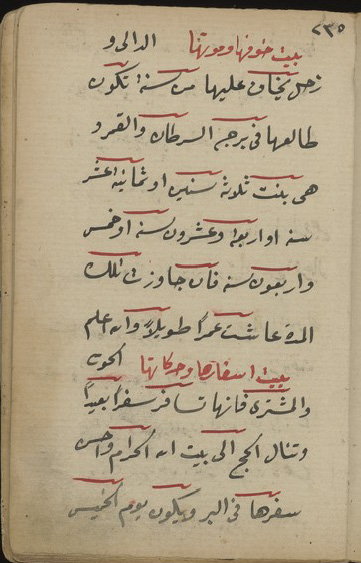 ٢٣٥
بيت خوفها وموتها الدالى و
زحل يخاف عليها من سنة تكون
طالعها فى برجه السرطان والقمر و
هى بنت ثلاثة سنين او ثمانية عشر
سنه او اربعة وعشرون سنه او خمس
واربعون سنه فان جاوزت تلك
المدة عاشت عمراً طويلاً والله اعلم
بيت اسفارها وحركاتها الحوت
والمشترى فانها تسافر سفراً بعيداً
وتنال الحج الى بيت الله الحرام واحسن
سفرها فى البر ويكون يوم الخميس